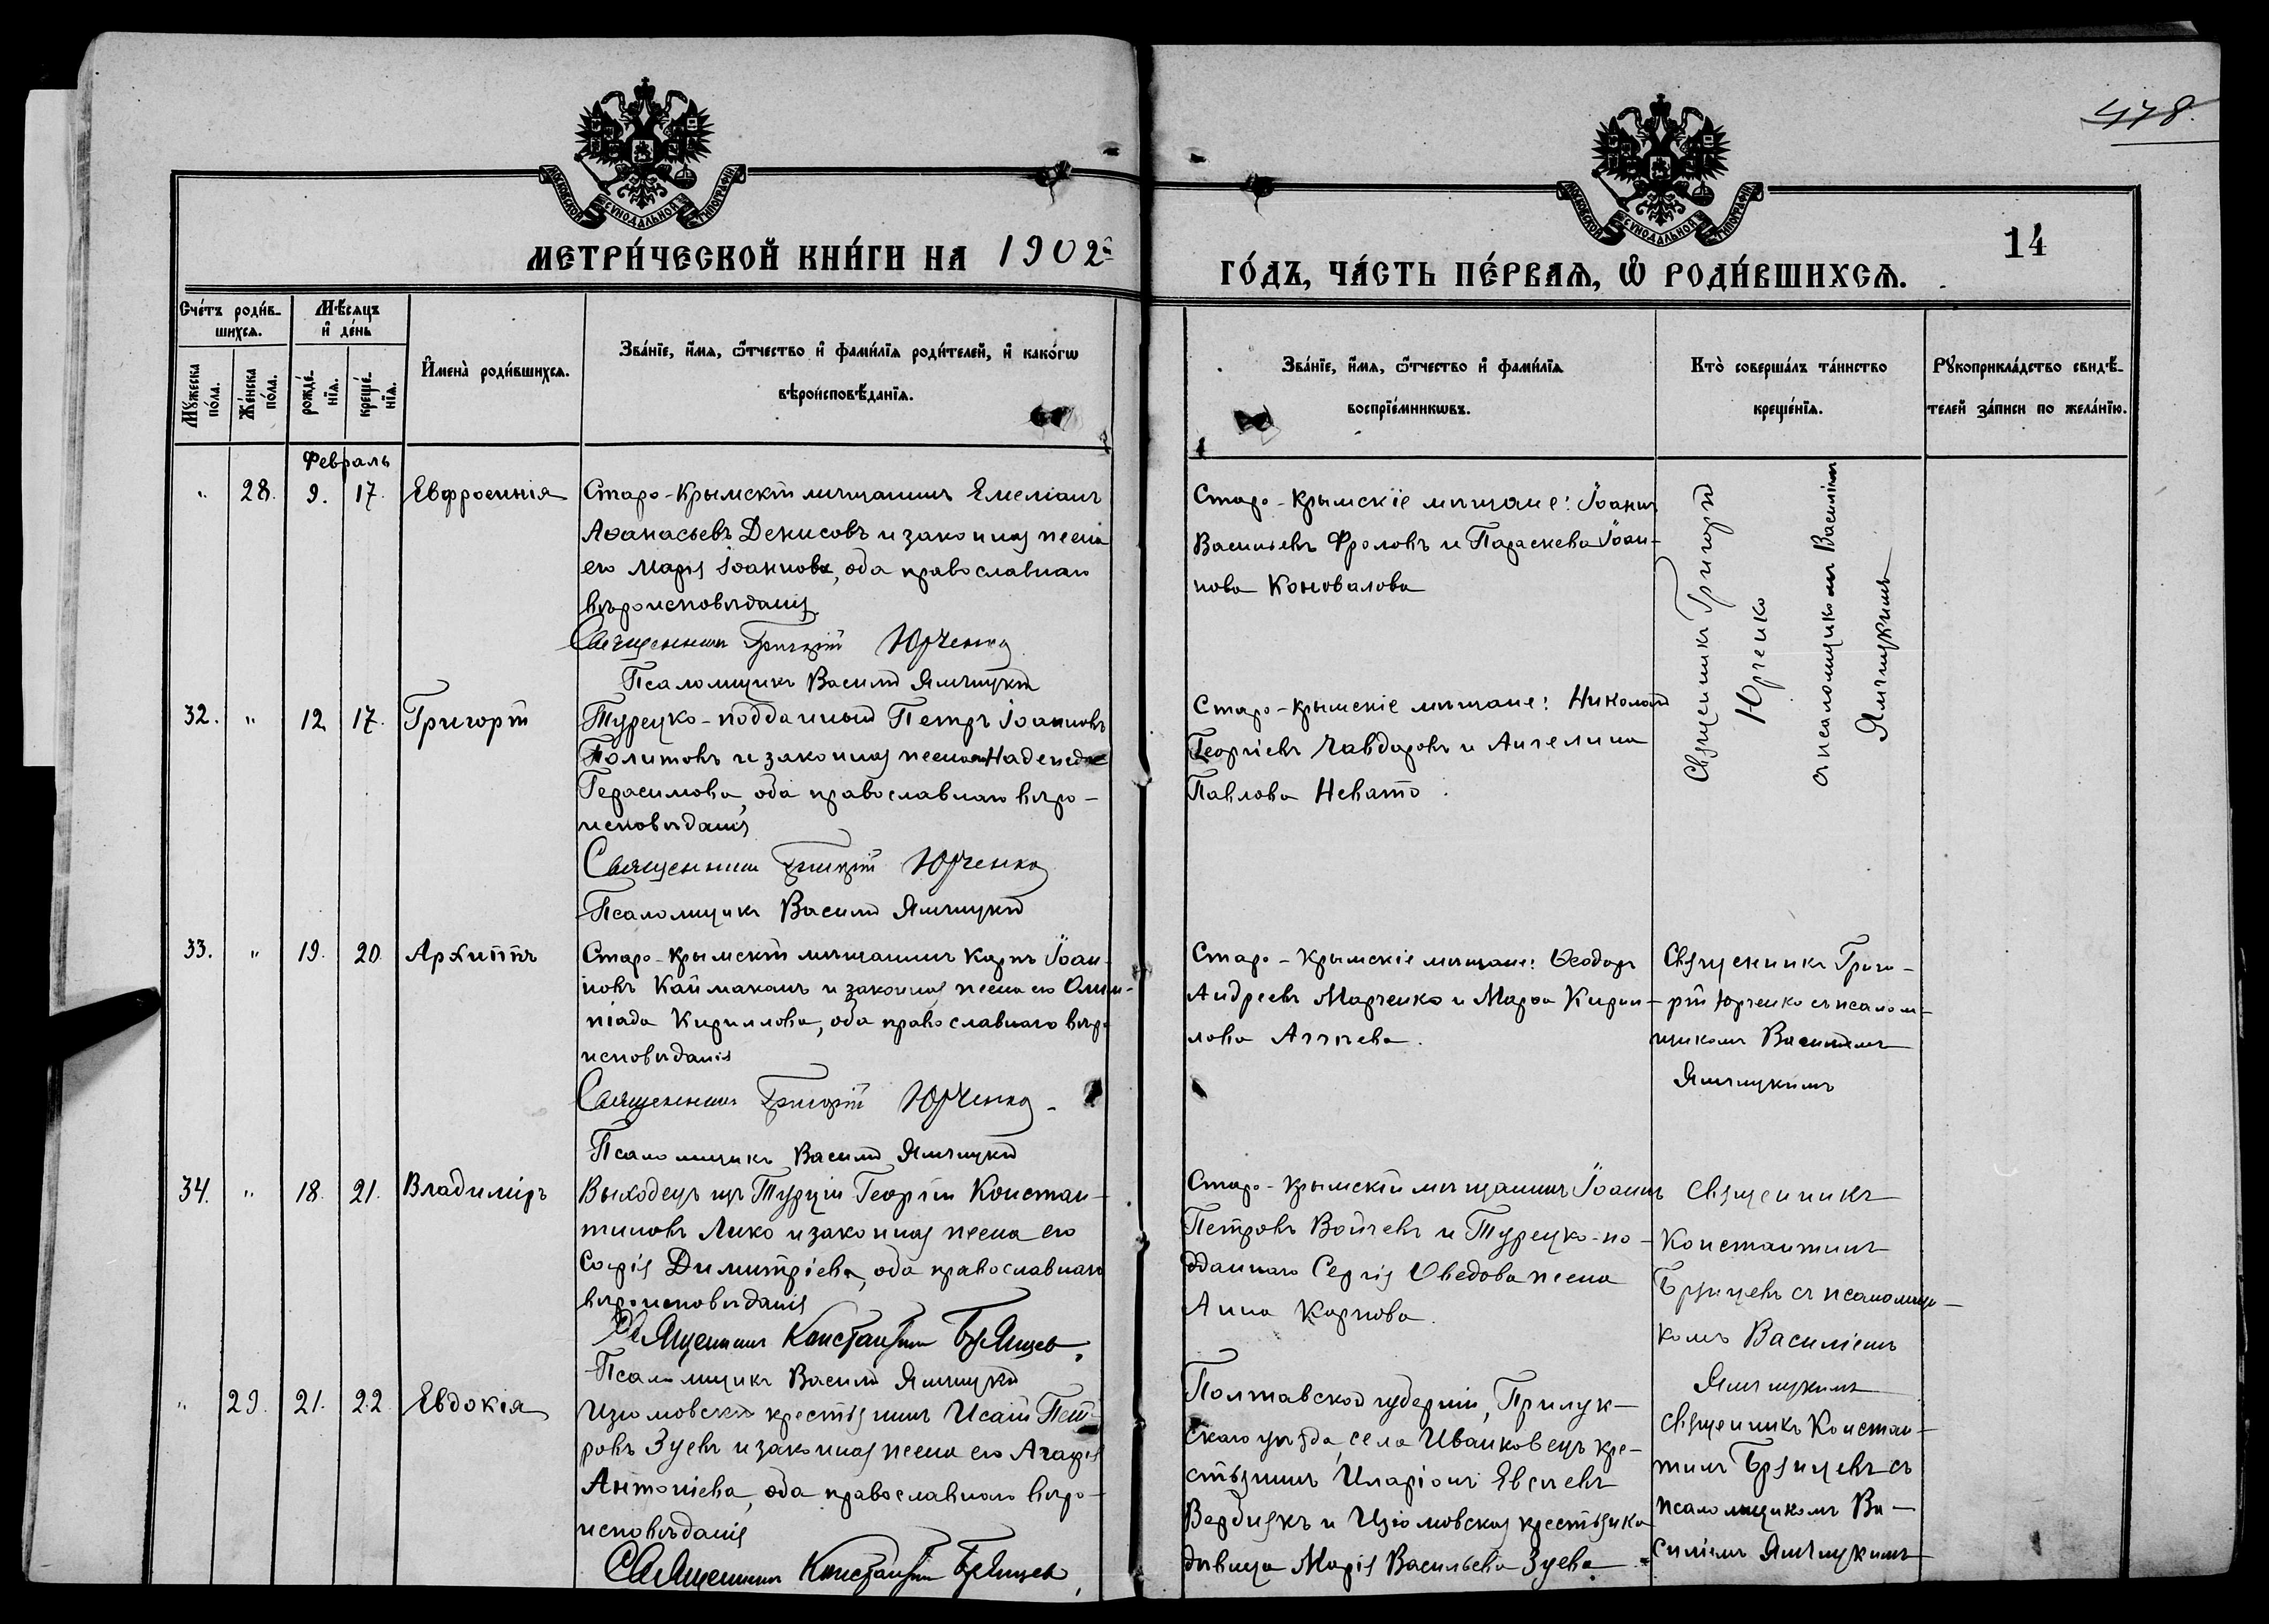 478.
МОСКОВСКОЙ СѴНОДАЛЬНОЙ ТИПОГРАФІИ
МОСКОВСКОЙ СѴНОДАЛЬНОЙ ТИПОГРАФІИ
14
МЕТРИ́ЧЕСКОЙ КНИ́ГИ НА 1902й
ГО́ДЪ, ЧА́СТЬ ПЕ́РВАѦ, Ѡ҆ РОДИ́ВШИХСѦ.
Сче́тъ роди́в-
шихсѧ.
Мѣ́сѧцъ
и҆ де́нь
Мꙋ́жеска
по́ла.
Же́нска
по́ла.
рожде́-
нїѧ.
креще́-
нїѧ.
И҆мена̀ роди́вшихсѧ.
Зва́нїе, и҆́мѧ, ѻ҆́тчество и҆ фами́лїѧ роди́телей, и҆ како́гѡ
вѣроисповѣ́данїѧ.
Зва́нїе, и҆́мѧ, ѻ҆́тчество и҆ фами́лїѧ
воспрїе́мникѡвъ.
Кто̀ соверша́лъ та́инство
креще́нїѧ.
Рꙋкоприкла́дство свидѣ́-
телей за́писи по жела́нїю.
Февраль
" 28. 9. 17. Евфросинія
Старо-Крымскій мѣщанинъ Емеліанъ
Аѳанасьевъ Денисовъ и законная жена
его Марія Іоаннова, оба православнаго
вѣроисповѣданія
Священникъ Григорій Юрченко
Псаломщикъ Василій Ямчицкій
Старо-Крымскіе мѣщане: Іоаннъ
Васильевъ Фроловъ и Параскева Іоан-
нова Коновалова
Священникъ Григорій
Юрченко
съ псаломщикомъ Василіемъ
Ямчицкимъ
32. " 12 17. Григорій
Турецко-подданный Петръ Іоанновъ
Политовъ и законная жена Надежда
Герасимова, оба православнаго вѣро-
исповѣданія
Священникъ Григорій Юрченко
Псаломщикъ Василій Ямчицкій
Старо-крымскіе мѣщане: Николай
Георгіевъ Чавдаровъ и Ангелина
Павлова Невато.
33. " 19. 20. Архиппъ
Старо-Крымскій мѣщанинъ Карпъ Іоан-
новъ Каймаканъ и законная жена его Олим-
піада Кириллова, оба православнаго вѣро
исповѣданія
Священникъ Григорій Юрченко
Псаломщикъ Василій Ямчицкій
Старо-Крымскіе мѣщане: Ѳеодоръ
Андреевъ Марченко и Марѳа Кирил-
лова
Священникъ Григо-
рій Юрченко съ псалом-
щикомъ Василіемъ
Ямчицкимъ
34. " 18. 21. Владиміръ
Выходецъ изъ Турціи Георгій Констан-
тиновъ Лико и законная жена его
Софія Димитріева, оба православнаго
вѣроисповѣданія
Священникъ Константинъ Брянцевъ
Псаломщикъ Василій Ямчицкій
Старо-Крымскій мѣщанинъ Іоаннъ
Петровъ Войчевъ и Турецко-по-
дданнаго Сергія жена
Анна Карпова.
Священникъ
Константинъ
Брянцевъ съ псаломщи-
комъ Василіемъ
Ямчицкимъ
" 29. 21. 22. Евдокія
Изюмовскій крестьянинъ Исаій Пет-
ровъ Зуевъ и законная жена его Агафія
Антоніева, оба православнаго вѣро-
исповѣданія
Священникъ Константинъ Брянцевъ
Полтавской губерніи, Прилук-
скаго уѣзда, села Иванковецъ кре-
стьянинъ Иларіонъ Евсѣевъ
Вербицкъ и Изюмовская крестьянка
дѣвица Марія Васильева Зуева
Священникъ Констан-
тинъ Брянцевъ съ
псаломщикомъ Ва-
силіемъ Ямчицкимъ